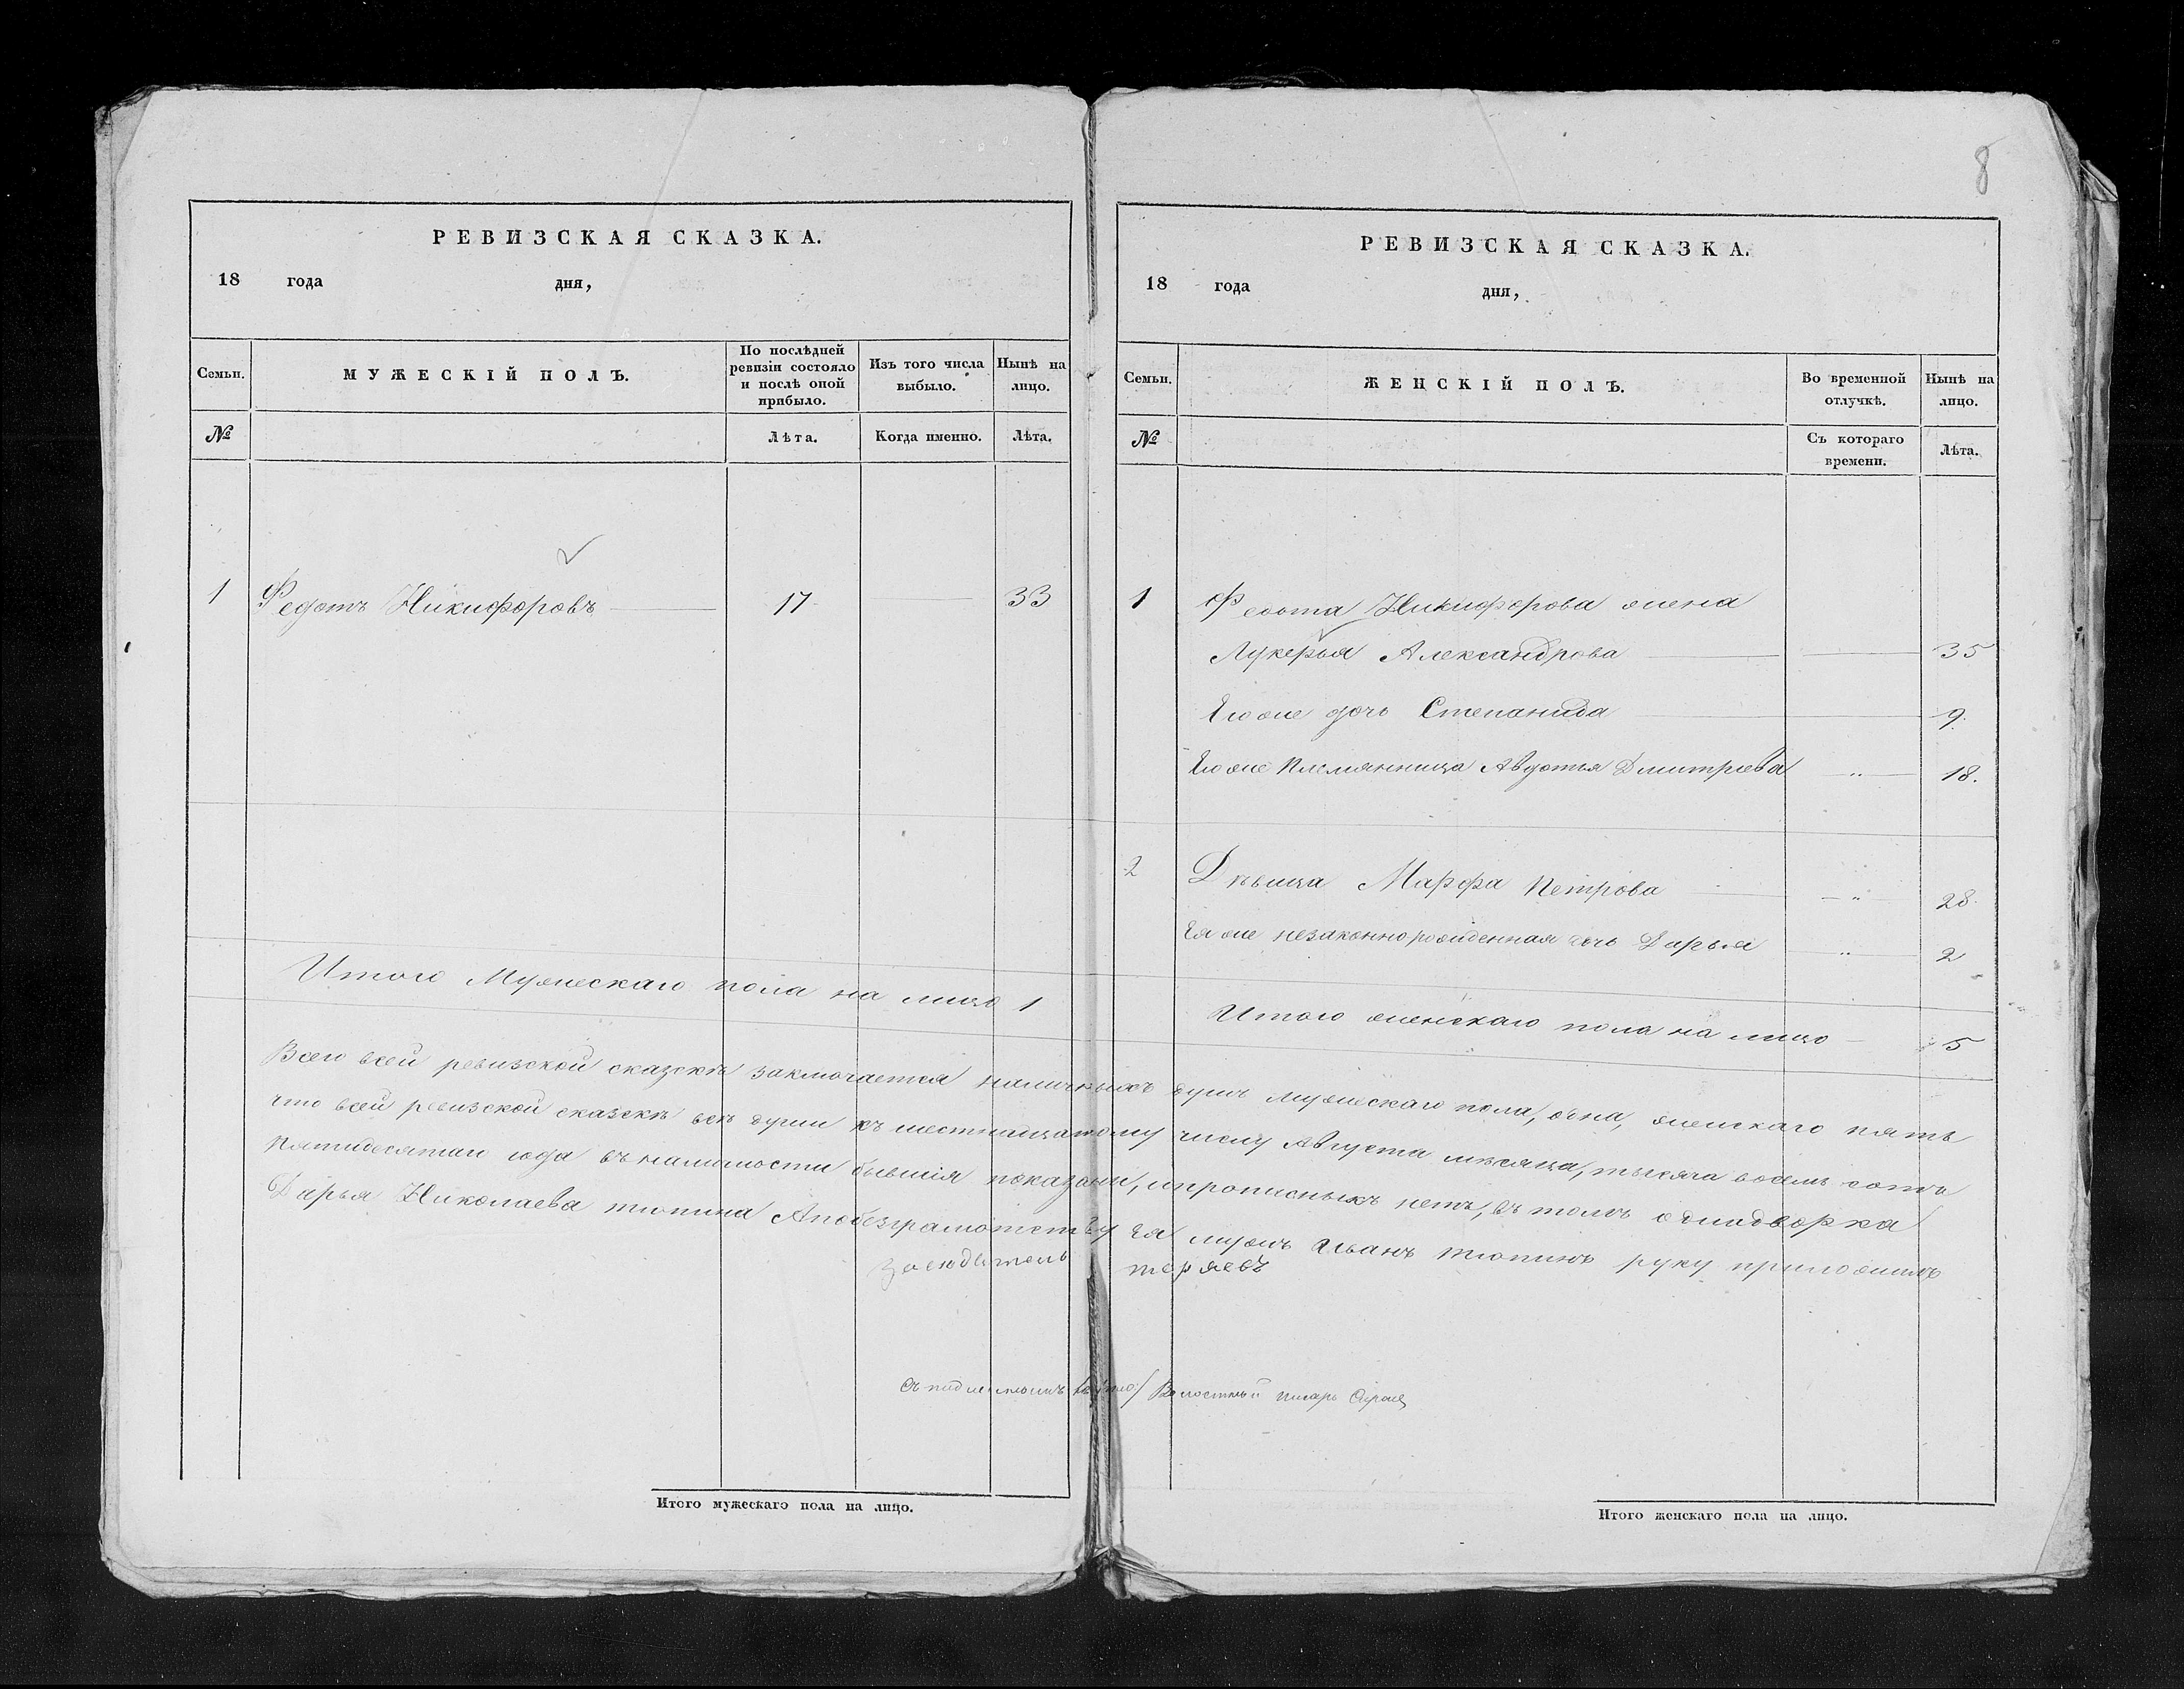 РЕВИЗСКАЯ СКАЗКА.
18 года дня,
Семьи. МУЖЕСКІЙ ПОЛЪ. По послѣдней ревизіи состояло и послѣ оной прибыло. Изъ того числа выбыло. Нынѣ на лицо.
№ Лѣта. Когда именно. Лѣта.
1 Федотъ Никифоровъ 17 33
Итого Мужескаго пола на лицо 1
8
РЕВИЗСКАЯ СКАЗКА.
18 года дня,
Семьи. ЖЕНСКІЙ ПОЛЪ. Во временной отлучкѣ. Нынѣ на лицо.
№ Съ котораго времени. Лѣта.
1 Федота Никифорова жена
Лукерья Александрова 35
Его же дочь Степанида 9.
Его же Племянница Авдотья Дмитріева " 18.
2 Дѣвица Марфа Петрова " 28.
Ея же незаконнорожденная дочь Дарья " 2
Итого женскаго пола на лицо 5
Всего всей ревизской сказскѣ заключается наличныхъ душъ мужескаго пола, одна, женскаго пять
что всей ревизской сказскѣ всѣ души къ шестнадцатому числу Августа мѣсяца, тысяча восемь сотъ
пятидесятаго года въ наличности бывшія показаны, и прописныхъ нетъ, въ томъ однадворка
Дарья Николаева тюпина А по безграмотству Ея мужъ Иванъ Тюпинъ руку приложилъ
Волостный писарь
Итого мужескаго пола на лицо.
Итого женскаго пола на лицо.